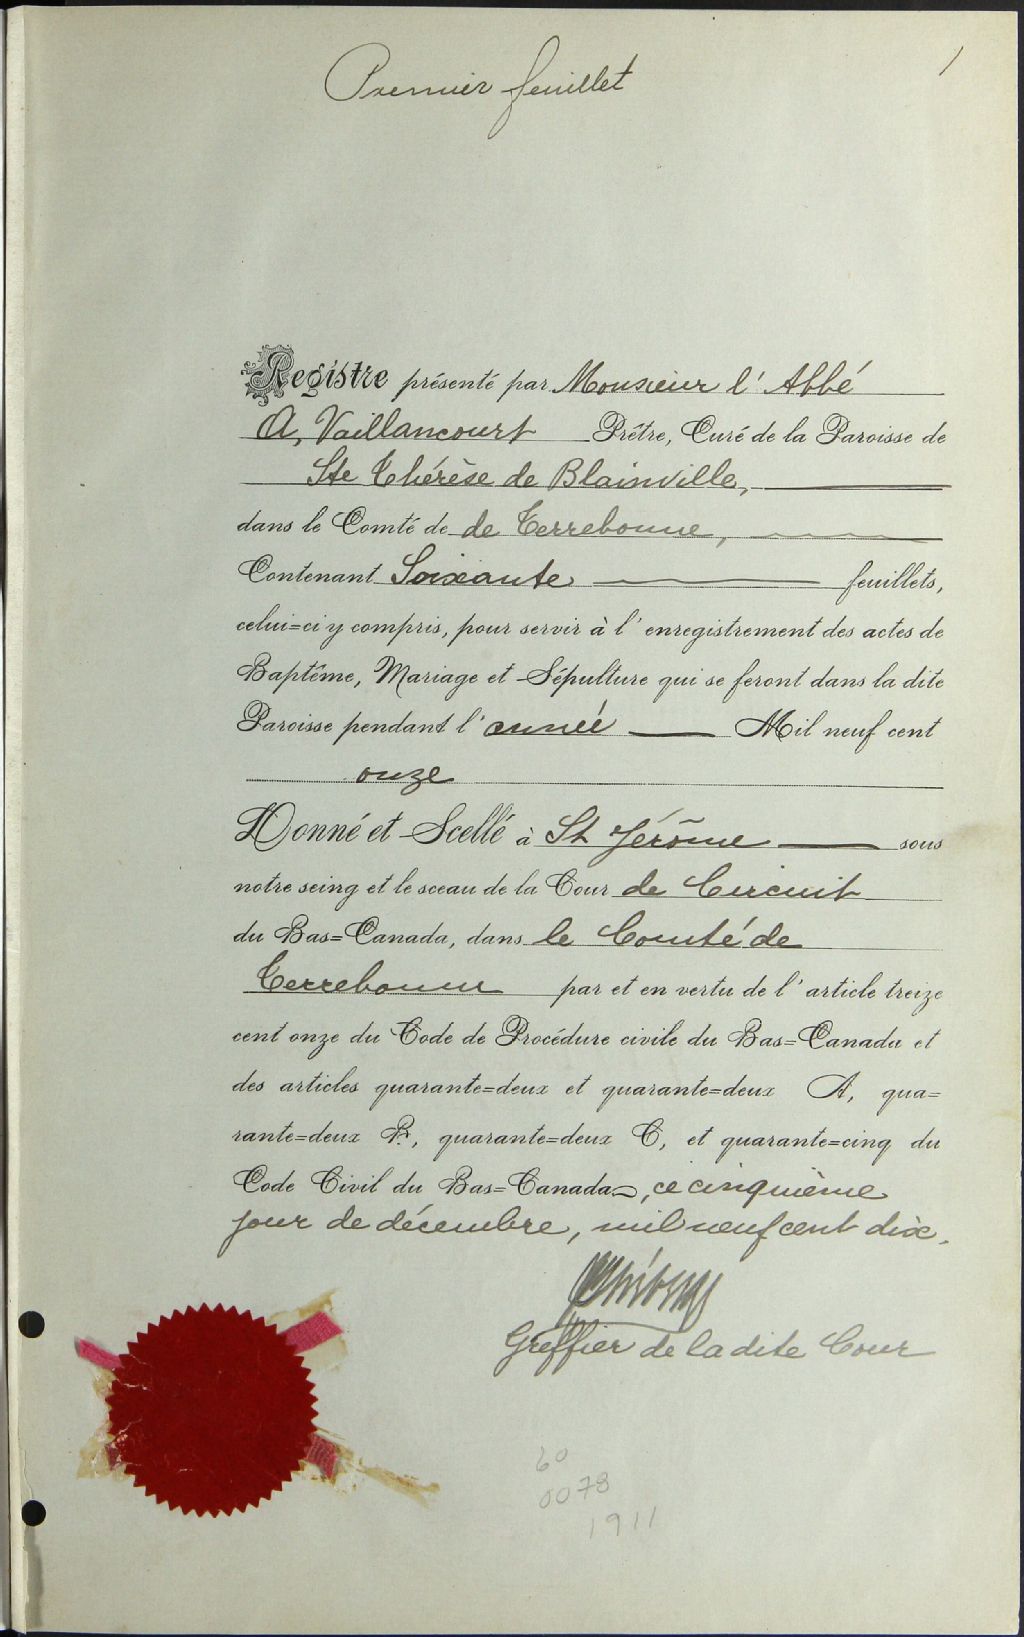 1
Premier feuillet
Registre présenté par Monsieur l'Abbé
A, Vaillancourt Prêtre, Curé de la Paroisse de
Ste Thérèse de Blainville,
dans le Comté de de Terrebonne,
Contenant Soixante feuillets,
celui=ci y compris, pour servir à l'enregistrement des actes de
Baptême, Mariage et Sépulture qui se feront dans la dite
Paroisse pendant l'année Mil neuf cent
onze
Donné et Scellé à St Jérôme sous
notre seing et le sceau de la Cour de Circuit
du Bas=Canada, dans le Comté de
Terrebonne par et en vertu de l'article treize
cent onze du Code de Procédure civile du Bas=Canada et
des articles quarante=deux et quarante=deux A, qua=
rante=deux B, quarante=deux C, et quarante=cinq du
Code Civil du Bas=Canada, ce cinquième
jour de décembre, mil neuf cent dix.
Greffier de la dite Cour
60
0078
1911